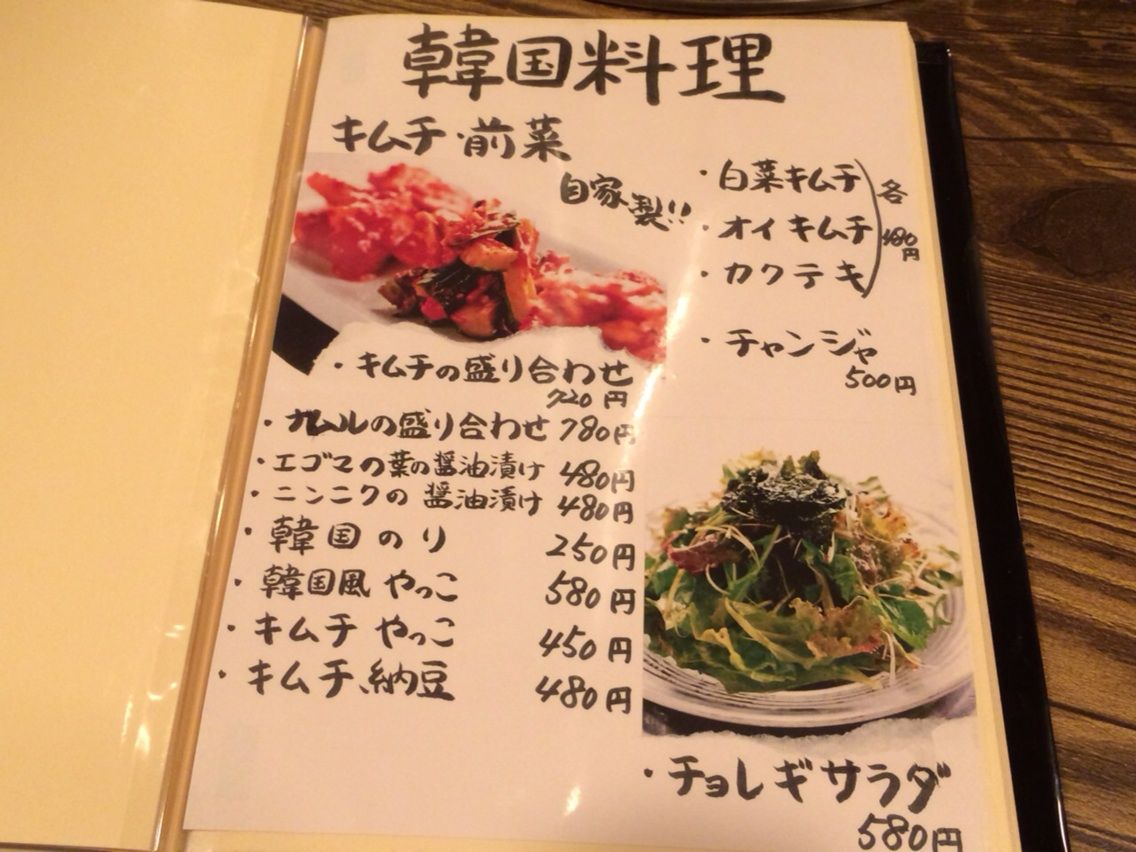 韓国料理
キムチ・前菜
自家製!!
・白菜キムチ
・オイキムチ
・カクテキ
各
480円
・チャンジャ
500円
・キムチの盛り合わせ
720円
・ナムルの盛り合わせ 780円
・エゴマの葉の醤油漬け 480円
・ニンニクの醤油漬け 480円
・韓国のり 250円
・韓国風やっこ 580円
・キムチやっこ 450円
・キムチ納豆 480円
・チョレギサラダ
580円